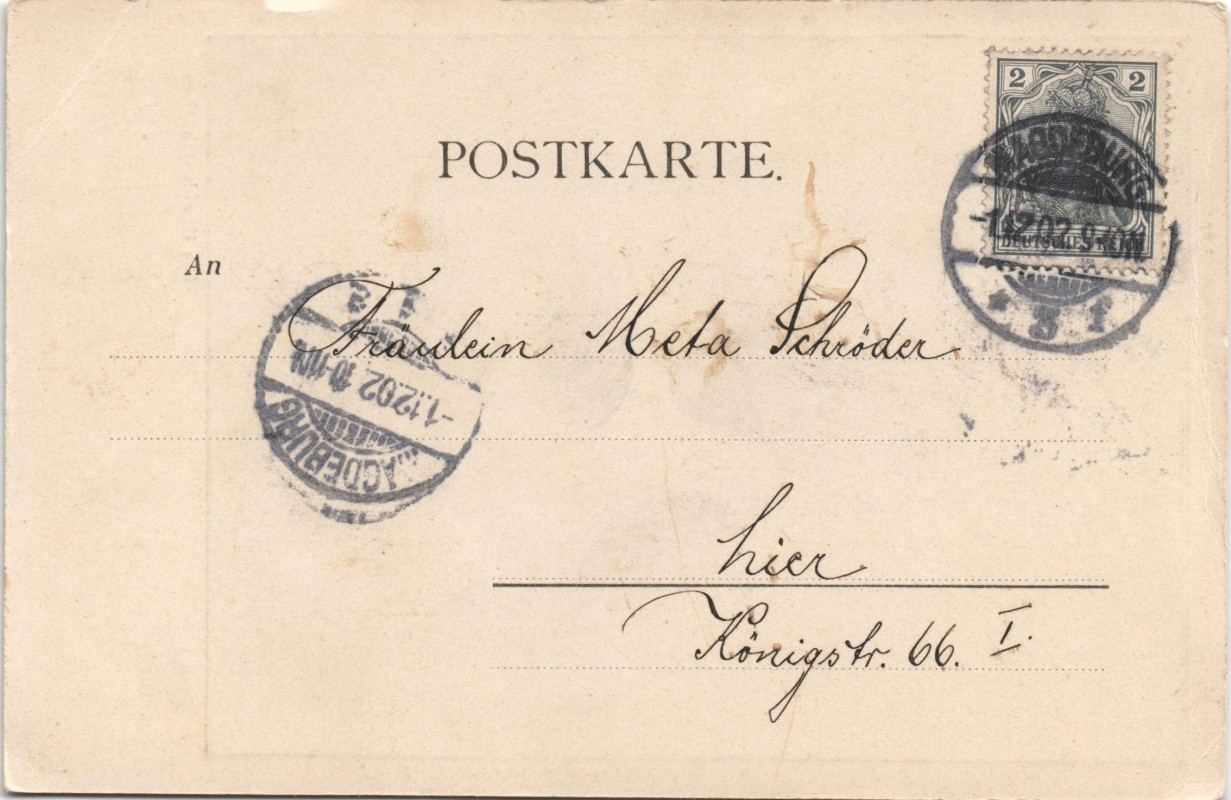 2 2
DEUTSCHES REICH
MAGDEBURG
-1.12.02.9-10N
* 3 f
POSTKARTE.
An
Fräulein Meta Schröder
-1.12.02.10-11N
MAGDEBURG
hier
Königstr. 66. I.